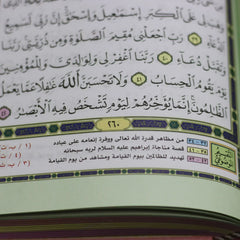 عَلَى ٱلْكِبَرِ إِسْمَٰعِيلَ وَإِسْحَٰقَ إِنَّ رَبِّى لَسَمِيعُ
رَبِّ ٱجْعَلْنِى مُقِيمَ ٱلصَّلَوٰةِ وَمِن ذُرِّيَّتِى رَبَّنَا
دُعَآءِ ٤٠ رَبَّنَا ٱغْفِرْ لِى وَلِوَٰلِدَىَّ وَلِلْمُؤْمِنِينَ
يَوْمَ يَقُومُ ٱلْحِسَابُ ٤١ وَلَا تَحْسَبَنَّ ٱللَّهَ غَٰفِلًا عَمَّا
ٱلظَّٰلِمُونَ إِنَّمَا يُؤَخِّرُهُمْ لِيَوْمٍ تَشْخَصُ فِيهِ ٱلْأَبْصَٰرُ
٢٦٠
من مظاهر قدرة الله تعالى ووفرة إنعامه على عباده
قصة مناجاة إبراهيم عليه السلام لربه سبحانه
تهديد للظالمين بيوم القيامة ومشاهد من يوم القيامة